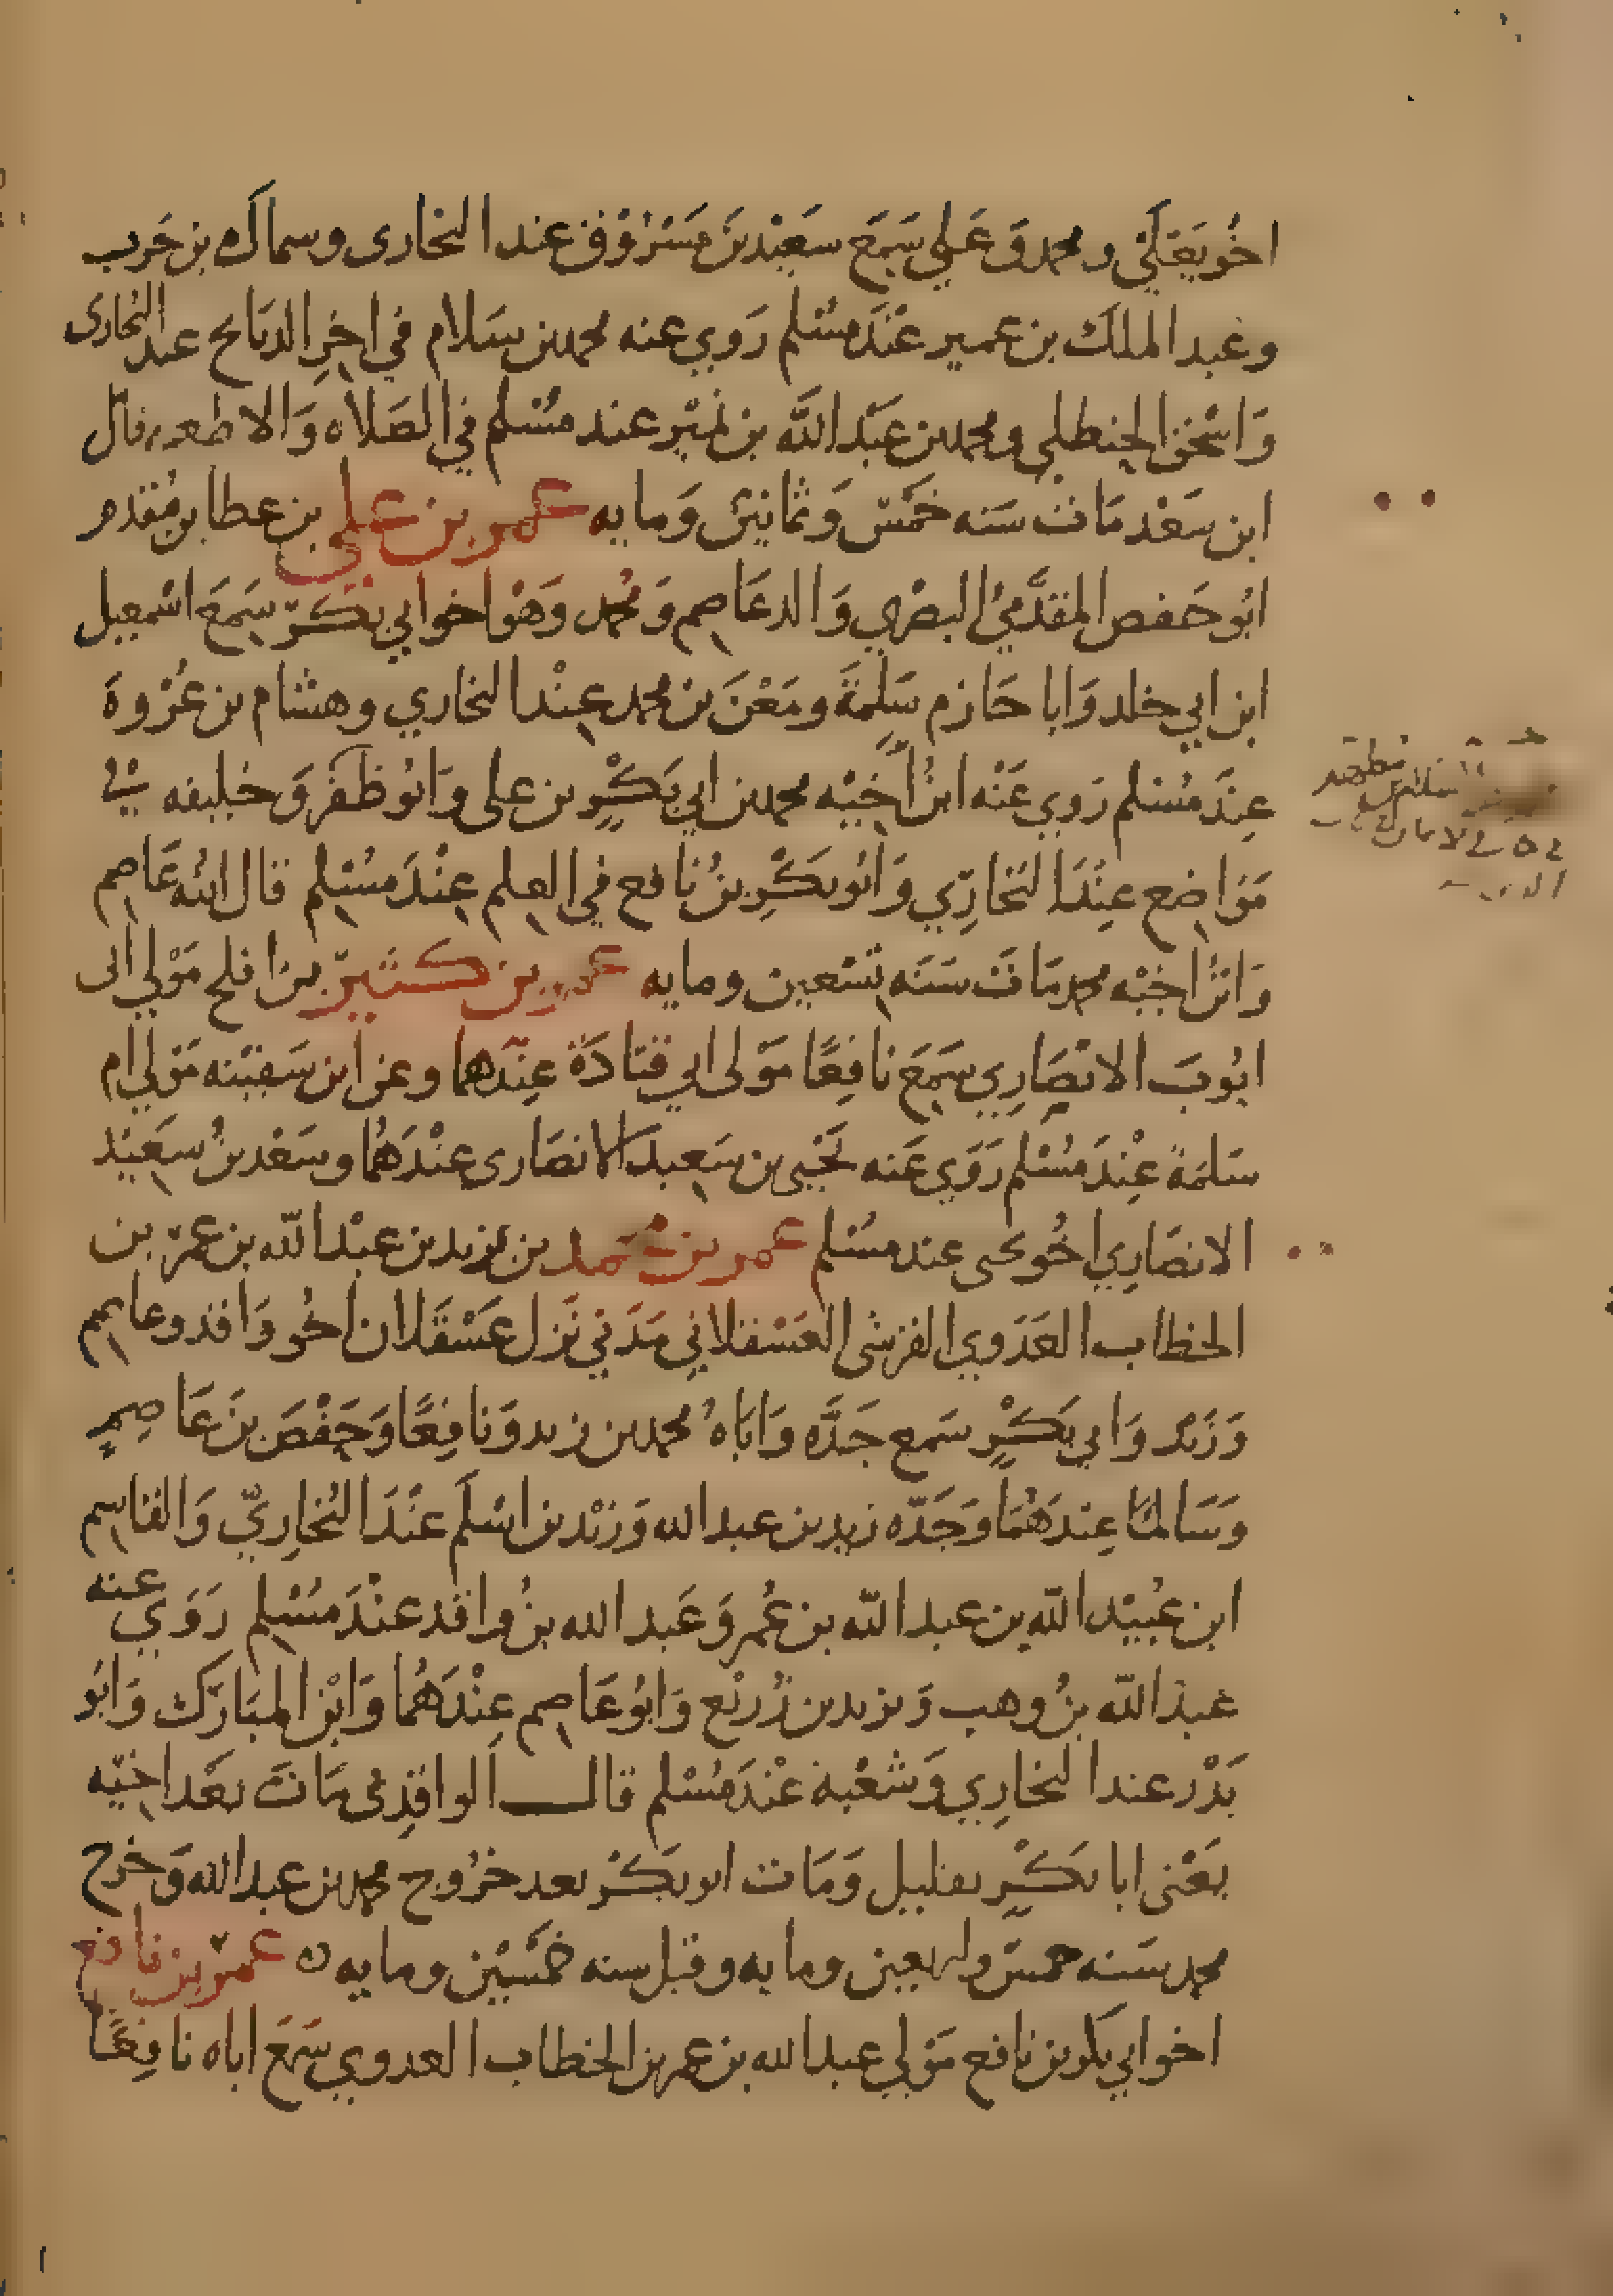 اخُو يَعْلَى ومحمد وَعَلي سَمِعَ سعَيْد بنَ مَسْرُوْق عند البخارى وسماك بن حَرب
وعَبد الملك بن عمير عنْدَ مسْلم رَوي عنه محمد بن سَلام في اخِر الذبَائح عند البُخارى
وَاسْحٰق الحنطلي ومحمد بن عبَد الله بن نمَيْر عند مسْلم في الصَلاه وَالاطعمه قال
ابن سَعْد مَات سَنه خمَسْ وَثمانينَ وَمايه عمر بن علي بن عطا بن مُقدم
ابُو حَفص المقدَّميُّ البصْري وَالد عَاصِم وَمُحمد وَهْوَ اخو ابي بكرّ سِمعَ اسْمعيل
ابن ابي خلد وَابا حَازم سَلِمةَ ومَعْنَ بن محمد عِنْد البخاري وهشام بن عُرْوةَ
عِندَ مسْلم رَوي عَنْه ابنُ اَخيْه محمد بن ابي بَكْرٍ بن على وَابُو ظفَر وَخليفه في
مَوَاضِع عِنْدَ البخارِّي وَابُو بكْرِ بنُ نافع في العِلم عِنْدَ مسْلِم قال ابنُه عَاصِم
وَابنُ اخيْه محمد مَاتَ سَنَه تِسْعين ومايه عمر بن كثير بن افلح مَوْلي ابى
ايُوبَ الانصَارِي سَمِعَ نافِعًا مَوْلى ابي قتادَة عِنْدَهما وعن ابن سَفيْنه مَوْلي ام
سَلمَة عِنْدَ مسْلم رَوَي عَنه يَحْيى بن سَعِيد الانصَارى عِنْدَهُمَا وسَعْد بنُ سعَيْد
الانصَارِي اخُو يحيى عند مسْلم عمر بن محمد بن زيد بن عبْد الله بن عمرَ بن
الخطاب العَدَوي القرشى العَسْقلاني مَدَني نَزل عَسْقَلان اخُو وَاقد وعاصِم
وَزَيْد وَابي بَكْرٍ سَمع جَدَّه وَابَاهُ محمد بن زيد وَنافِعًا وَحَفْصَ بنَ عَاصِمٍ
وَسَالمًا عِندَهُمَا وَجَدّه زيد بن عبد الله وَزيْد بن اسْلَم عنْدَ البُخارِيّ وَالقاسِم
ابن عُبيْد الله بن عبد الله بن عُمر وَعَبد الله بنُ واقد عنْدَ مسْلم رَوَي عنه
عبدَ الله بنُ وهب وَيزيد بن زُرَيْع وَابُو عَاصِم عِنْدَهُمَا وَابْن المبَارَك وَابُو
بَدْر عند البخارِي وَشعْبة عنْدَ مسْلم قال الواقِدِي مَاتَ بعْد اخيْه
يَعْنى ابا بكْرٍ بقليل وَمَات ابو بكْر بعد خرُوج محمد بن عبد الله وَخرج
محمد سَنه خمسَ واربعين ومايه وقيل سنه خمْسِيْن ومايه ه عمرُ بن نافع
اخو ابي بكر بن نافع مَوْلي عبد الله بن عمر بن الخطاب العدوي سَمعَ اباه نافِعًا